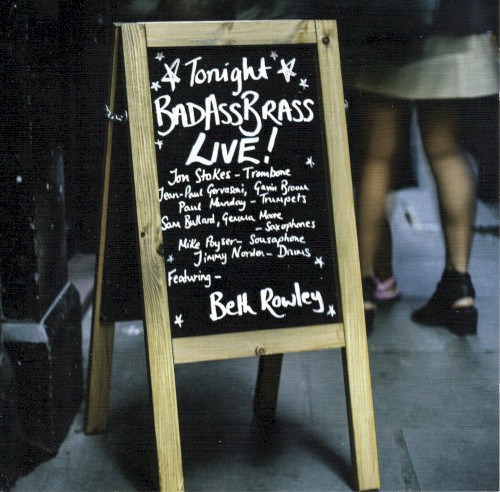 Tonight
BADASSBRASS
LIVE!
Jon Stokes - Trombone
Jean-Paul Gervasoni, Gavin Broom
Paul Munday - Trumpets
Sam Bullard, Gemma Moore
- Saxophones
Mike Poyser - Sousaphone
Jimmy Norden - Drums
Featuring -
Beth Rowley